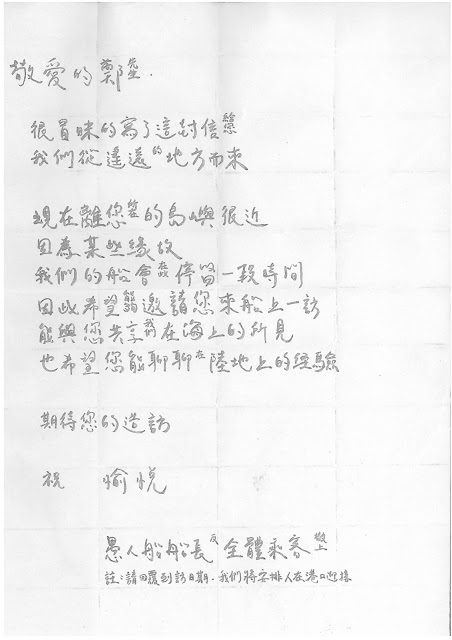 敬愛的鄭先生.
很冒昧的寫了這封信給您
我們從遙遠的地方而來
現在離您的島嶼很近
因為某些緣故
我們的船會在此停留一段時間
因此希望能夠邀請您來船上一訪
能與您共享我們在海上的所見
也希望您能聊聊在陸地上的經驗
期待您的造訪
祝 愉悅
愚人船船長及全體乘客敬上
註:請回覆到訪日期,我們將安排人在港口迎接